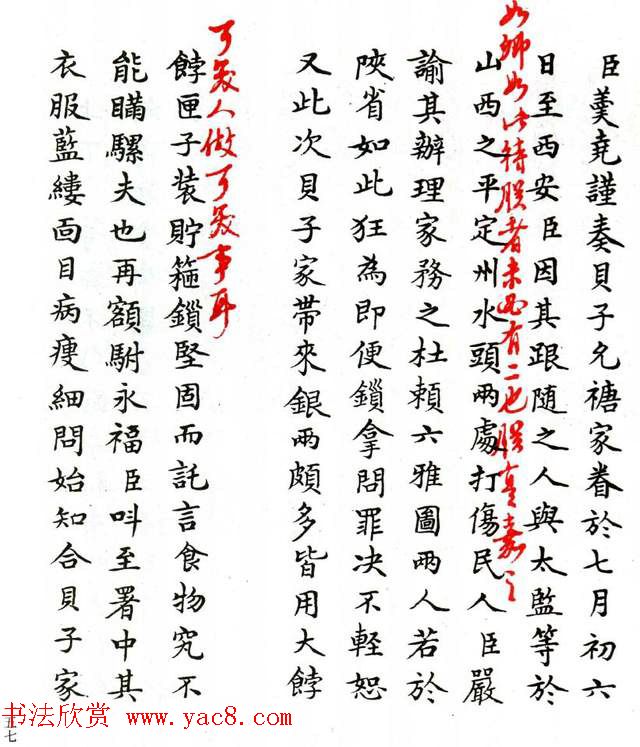 臣羹堯謹奏貝子允禟家眷於七月初六
日至西安臣因其跟隨之人與太監等於
如卿如此待朕者未必有二也朕嘉之
山西之平定州水頭兩處打傷民人臣嚴
諭其辦理家務之杜賴六雅圖兩人若於
陝省如此狂為即便鎖拿問罪决不輕恕
又此次貝子家帶來銀兩頗多皆用大餑
可笑人做可笑事耳
餑匣子裝貯箍鎖堅固而託言食物究不
能瞞騾夫也再額駙永福臣呌至署中其
衣服藍縷面目病瘦細問始知合貝子家
五七
书法欣赏 www.yac8.com